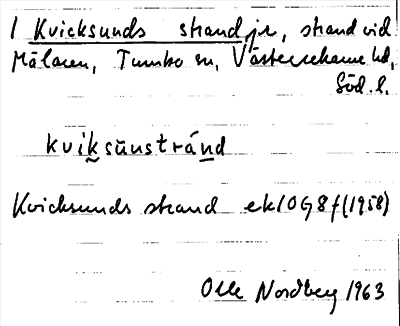 1 Kvicksunds strand, jr, strand vid
Mälaren, Tumbo sn, Västerrekarne hd,
Söd. l.
kviksu̇nstránd
Kvicksunds strand ek 10G8f (1958)
Olle Nordberg 1963